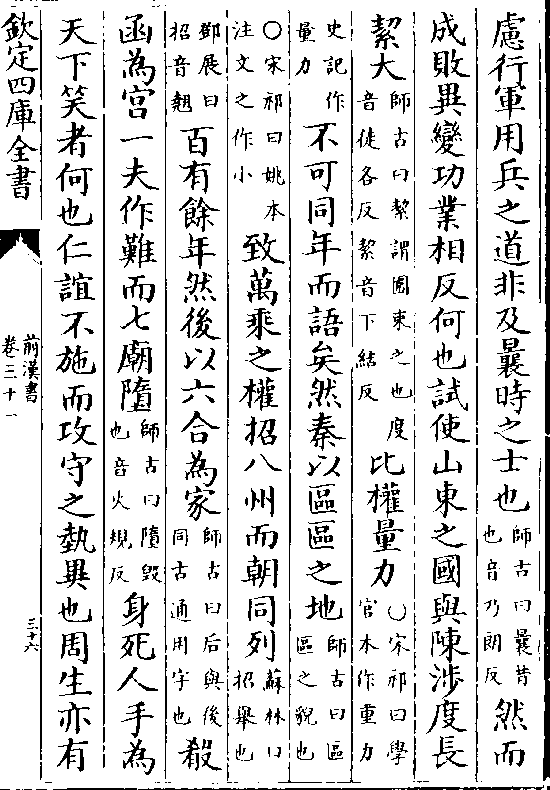 慮行軍用兵之道非及曩時之士也師古曰曩昔也音乃朗反然而
成敗異變功業相反何也試使山東之國與陳涉度長
絜大師古曰絜謂圍束之也度音徒各反絜音下結反比權量力○宋祁曰學官本作重力
史記作量力不可同年而語矣然秦以區區之地師古曰區區之貌也
○宋祁曰姚本注文之作小致萬乘之權招八州而朝同列蘇林曰招舉也
鄧展曰招音翹百有餘年然後以六合為家師古曰后與後同古通用字也殽
函為宮一夫作難而七廟墮師古曰墮毀也音火規反身死人手為
天下笑者何也仁誼不施而攻守之埶異也周生亦有
欽定四庫全書
前漢書
卷三十一
三十六